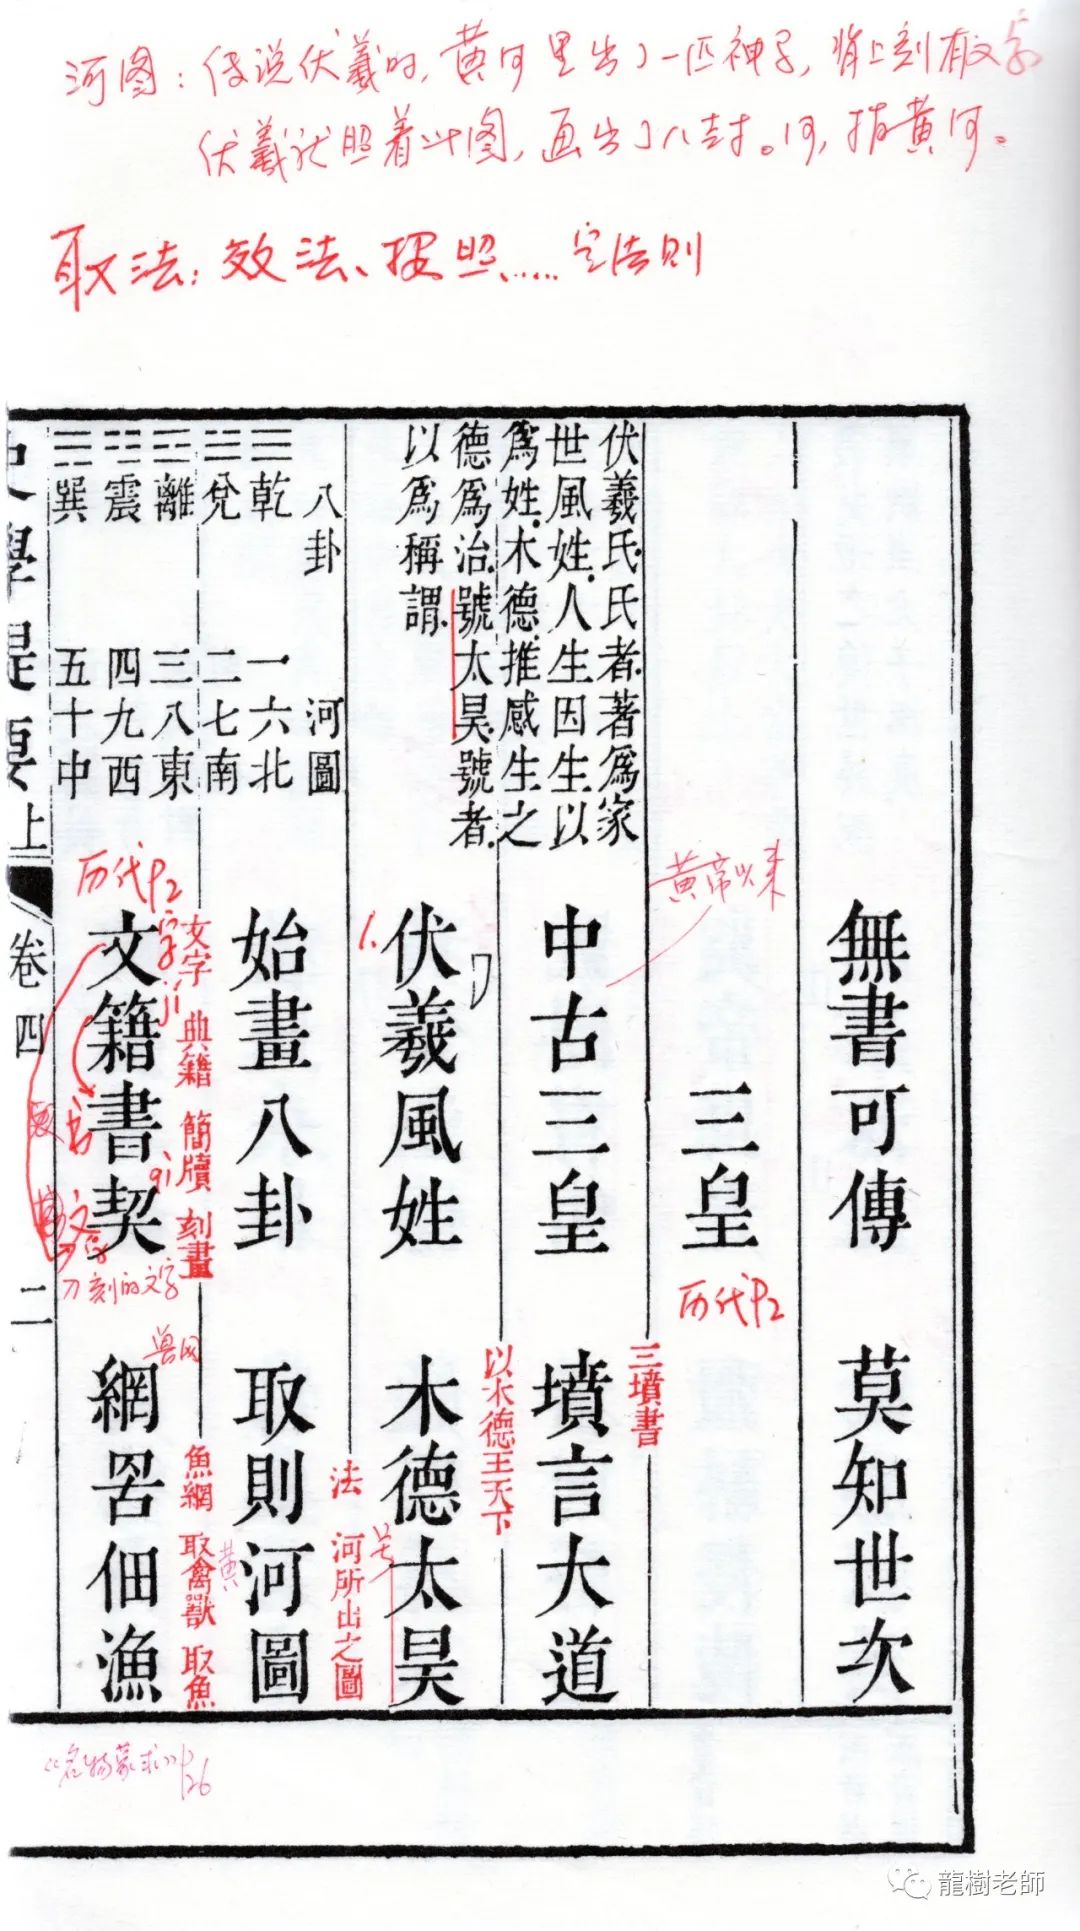 河图：传说伏羲时，黄河里出了一匹神马，背上刻有文字
伏羲就照着此图，画出了八卦。河，指黄河。
取法：效法、按照……定法则
伏羲氏氏者著爲家
世風姓人生因生以
爲姓木德推感生之
德爲治號太昊號者
以爲稱謂
八卦
☰乾
☱兌
離
震
巽
河圖
一六北
二七南
三八東
四九西
五十中
無書可傳 莫知世次
三皇
历代P2
黄帝以来
中古三皇 墳言大道
三墳書
1.
伏羲風姓 木德太昊
以木德王天下
号
始畫八卦 取則河圖
法 河所出之圖
黄
历代P2
文籍書契 網罟佃漁
文字 典籍 簡牘 刻畫
字
jí
书
qì
文字
刀刻的文字
兽网
魚網 取禽獸 取魚
史學提要上
卷四
二
《名物蒙求》P26
龍樹老師